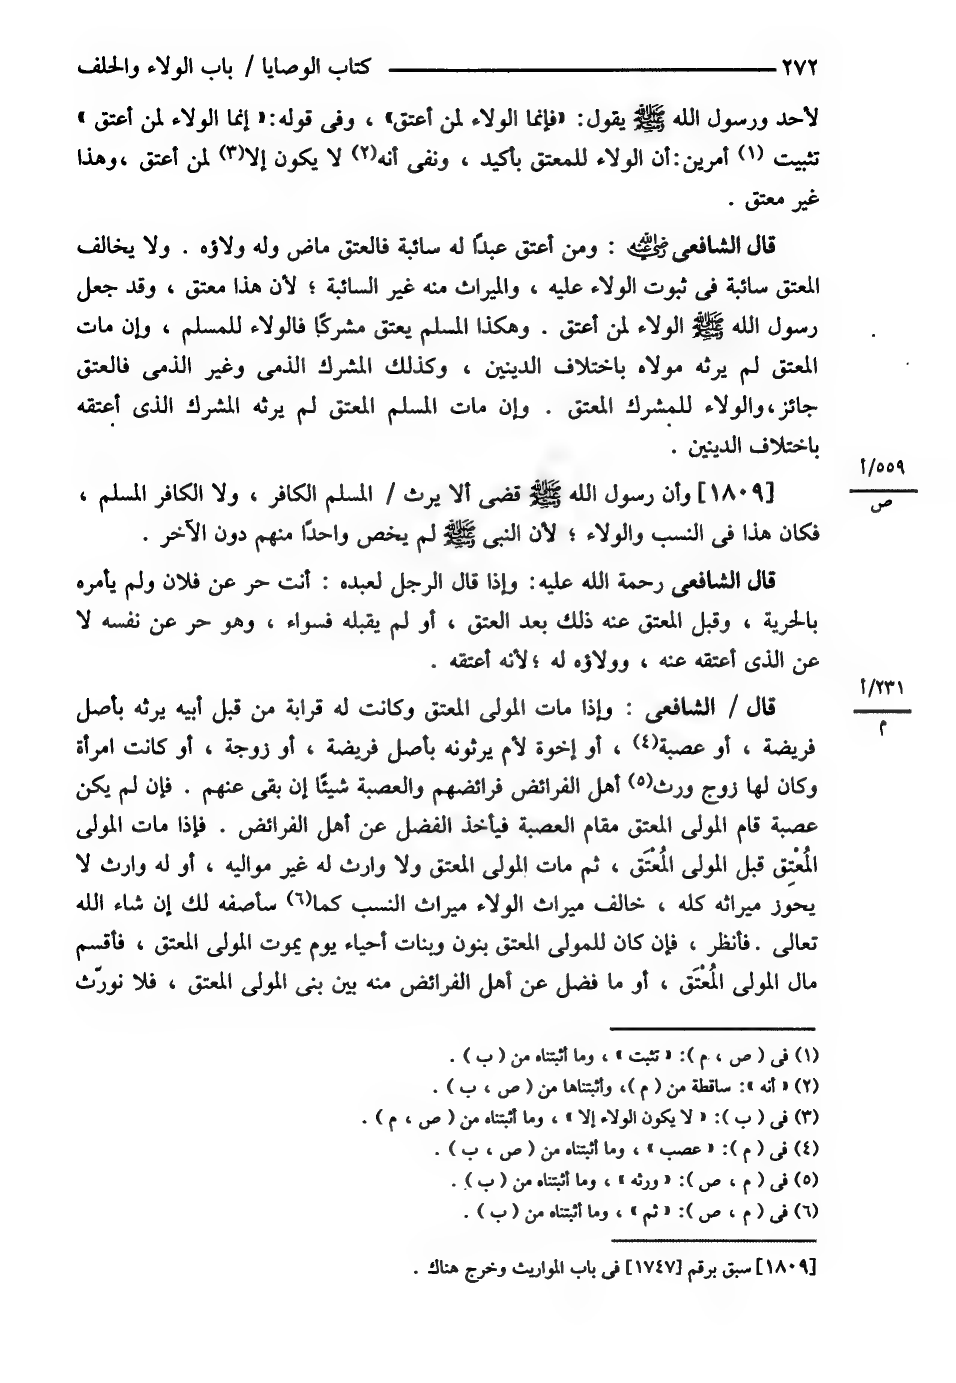 ٢٧٢ ــــــــــــــــــــ كتاب الوصايا / باب الولاء والحلف
لأحد ورسول الله ﷺ يقول: «فإنما الولاء لمن أعتق» ، وفى قوله:« إنما الولاء لمن أعتق »
تثبيت (١) أمرين:أن الولاء للمعتق بأكيد ، ونفى أنه(٢) لا يكون إلا(٣) لمن أعتق ،وهذا
غير معتق .
قال الشافعى رضي الله عنه : ومن أعتق عبدًا له سائبة فالعتق ماض وله ولاؤه . ولا يخالف
المعتق سائبة فى ثبوت الولاء عليه ، والميراث منه غير السائبة ؛ لأن هذا معتق ، وقد جعل
رسول الله ﷺ الولاء لمن أعتق . وهكذا المسلم يعتق مشركًا فالولاء للمسلم ، وإن مات
المعتق لم يرثه مولاه باختلاف الدينين ، وكذلك المشرك الذمى وغير الذمى فالعتق
جائز،والولاء للمشرك المعتق . وإن مات المسلم المعتق لم يرثه المشرك الذى أعتقه
باختلاف الدينين .
٥٥٩/أ
ص
[١٨٠٩] وأن رسول الله ﷺ قضى ألا يرث / المسلم الكافر ، ولا الكافر المسلم ،
فكان هذا فى النسب والولاء ؛ لأن النبى ﷺ لم يخص واحدًا منهم دون الآخر .
قال الشافعى رحمة الله عليه: وإذا قال الرجل لعبده : أنت حر عن فلان ولم يأمره
بالحرية ، وقبل المعتق عنه ذلك بعد العتق ، أو لم يقبله فسواء ، وهو حر عن نفسه لا
عن الذى أعتقه عنه ، وولاؤه له ؛لأنه أعتقه .
٢٣١/أ
م
قال / الشافعى : وإذا مات المولى المعتق وكانت له قرابة من قبل أبيه يرثه بأصل
فريضة ، أو عصبة(٤) ، أو إخوة لأم يرثونه بأصل فريضة ، أو زوجة ، أو كانت امرأة
وكان لها زوج ورث(٥) أهل الفرائض فرائضهم والعصبة شيئًا إن بقى عنهم . فإن لم يكن
عصبة قام المولى المعتق مقام العصبة فيأخذ الفضل عن أهل الفرائض . فإذا مات المولى
المُعْتِق قبل المولى المُعْتَق ، ثم مات المولى المعتق ولا وارث له غير مواليه ، أو له وارث لا
يحوز ميراثه كله ، خالف ميراث الولاء ميراث النسب كما(٦) سأصفه لك إن شاء الله
تعالى .فأنظر ، فإن كان للمولى المعتق بنون وبنات أحياء يوم يموت المولى المعتق ، فأقسم
مال المولى المُعْتَق ، أو ما فضل عن أهل الفرائض منه بين بنى المولى المعتق ، فلا نورّث
(١) فى ( ص ، م ): « تثبت » ، وما أثبتناه من ( ب ) .
(٢) « أنه »: ساقطة من ( م )، وأثبتناها من ( ص ، ب ) .
(٣) فى ( ب ): « لا يكون الولاء إلا » ، وما أثبتناه من ( ص ، م ) .
(٤) فى ( م ): « عصب » ، وما أثبتناه من ( ص ، ب ) .
(٥) فى ( م ، ص ): « ورثه » ، وما أثبتناه من ( ب ) .
(٦) فى ( م ، ص ): « ثم » ، وما أثبتناه من ( ب ) .
[١٨٠٩] سبق برقم [١٧٤٧] فى باب المواريث وخرج هناك .